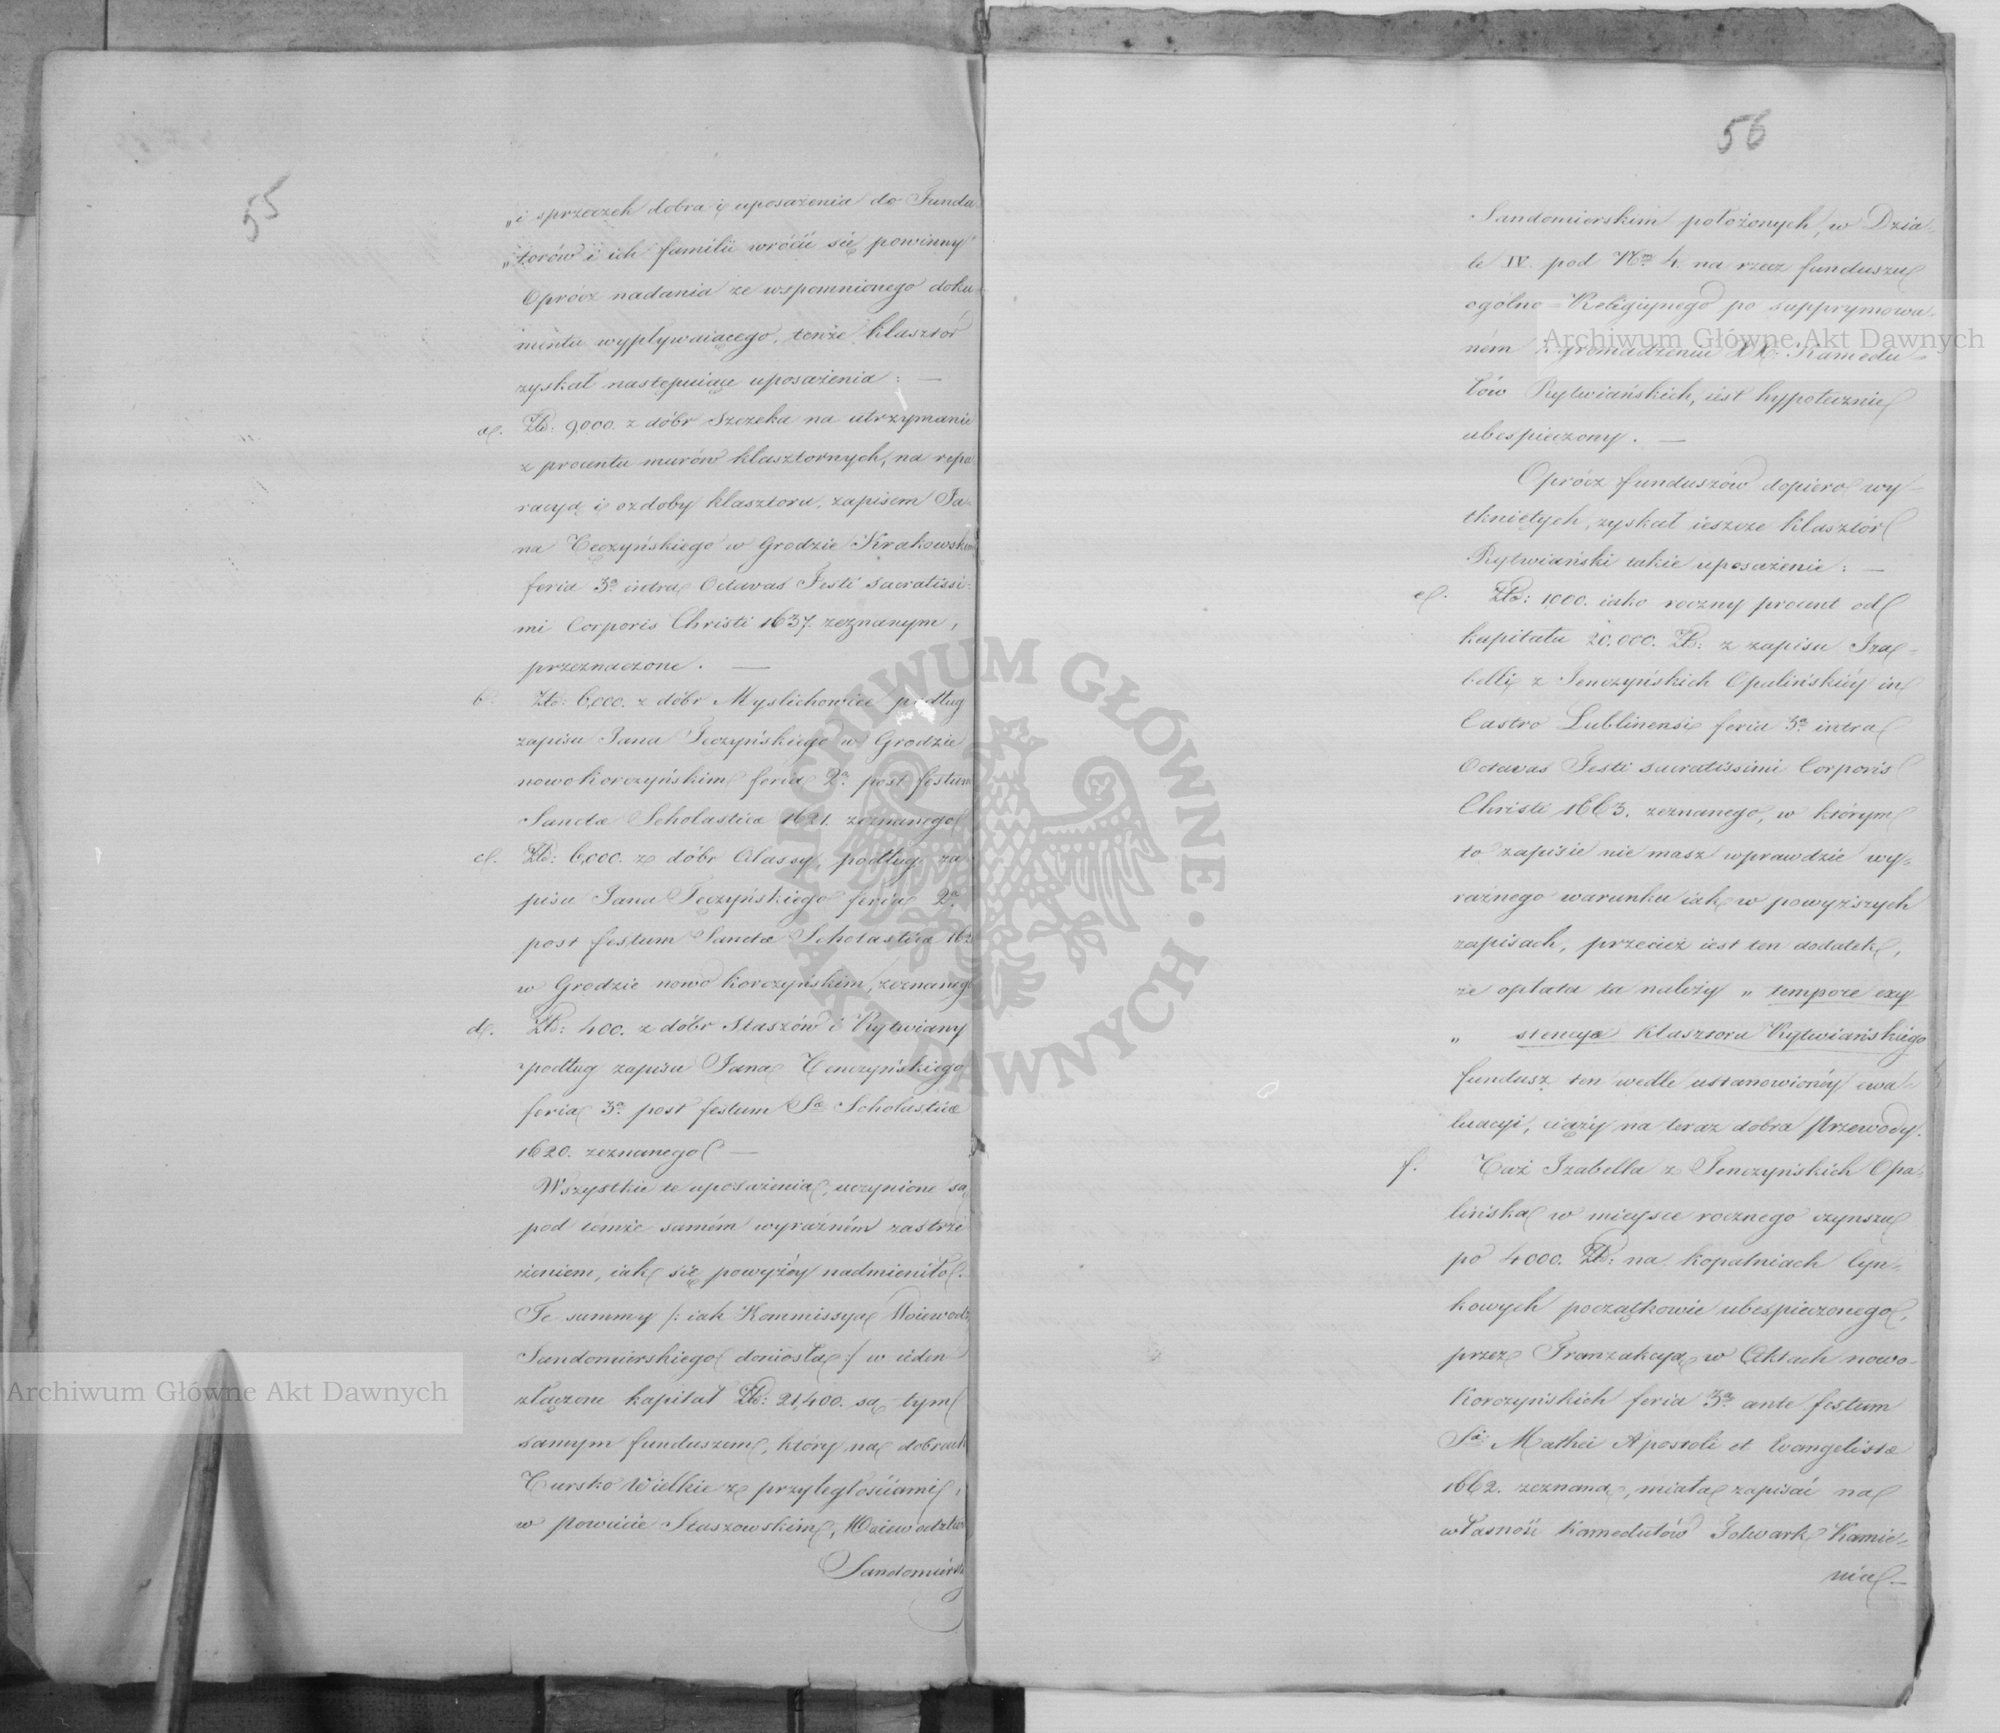 55
„i sprzeczek dobra i uposażenia do Funda-
„torów i ich familii wrócić się powinny"
Oprócz nadania ze wspomnionego doku-
mentu wypływaiącego, tenże klasztór
zyskał następuiące uposażenia: —
a. Złp: 9,000. z dóbr Szczeka na utrzymanie
z procentu murów klasztornych, na repa-
racyą i ozdoby klasztoru, zapisem Ja-
na Tęczyńskiego w Grodzie Krakowskim
feria 3ª intra Octavas Festi Sacratissi-
mi Corporis Christi 1637. zeznanym,
przeznaczone. —
b. Złp: 6,000. z dóbr Myslichowice podług
zapisu Jana Tęczyńskiego w Grodzie
nowo Korczyńskim feria 2ª post festum
Sanctæ Scholasticæ 1621. zeznanego
c. Złp: 6,000. z dóbr Alassy, podług za-
pisu Jana Tęczyńskiego feria 2ª
post festum Sanctæ Scholasticæ 162
w Grodzie nowo Korczyńskim, zeznaneg
d. Złp: 400. z dóbr Staszów i Rytwiany
podług zapisu Jana Tenczyńskiego
feria 3ª post festum Sæ Scholasticæ
1620. zeznanego —
Wszystkie te uposażenia, uczynione są
pod témże samém wyraźném zastrze-
żeniem, iak się powyżéy nadmieniło.
Te summy /: iak Kommissya Woiewodz
Sandomierskiego doniosła :/ w ieden
złączone kapitał Złp: 21,400. są tym
samym funduszem, który na dobrach
Tursko Wielkie z przyległościami,
w Powiecie Staszowskim, Woiewodztw
Sandomiérsk
56
Sandomierskim położonych, w Dzia-
le IV. pod Nrm 4. na rzecz funduszu
ogólno-Religiynego po supprymowa-
ném Zgromadzeniu XX. Kamedu-
łów Rytwiańskich, iest hypotecznie
ubespieczony. —
Oprócz funduszów dopiero wy-
tkniętych, zyskał ieszcze klasztór
Rytwiański takie uposażenie: —
e. Złp: 1,000. iako roczny procent od
kapitału 20,000. Złp: z zapisu Iza-
belli z Tenczyńskich Opalińskiéy in
Castro Lublinensi feria 3ª intra
Octavas Festi sacratissimi Corporis
Christi 1663. zeznanego, w którym
to zapisie nie masz wprawdzie wy-
raźnego warunku iak w powyższych
zapisach, przecież iest ten dodatek,
że opłata ta należy „tempore exy
„stencyæ klasztoru Rytwiańskiego
fundusz ten wedle ustanowionéy ewa-
luacyi, ciąży na teraz dobra Przewody.
f. Taż Izabella z Tenczyńskich Opa-
lińska w mieysce rocznego czynszu
po 4000. Złp: na kopalniach Cyn-
kowych początkowie ubespieczonego,
przez Tranzakcyą w Aktach nowo-
Korczyńskich feria 3ª ante festum
Si Mathei Apostoli et Evangelistæ
1662. zeznaną, miała zapisać na
własność Kamedułów Folwark Kamie-
nia —
Archiwum Główne Akt Dawnych
Archiwum Główne Akt Dawnych
ARCHIWUM GŁÓWNE · AKT DAWNYCH ·